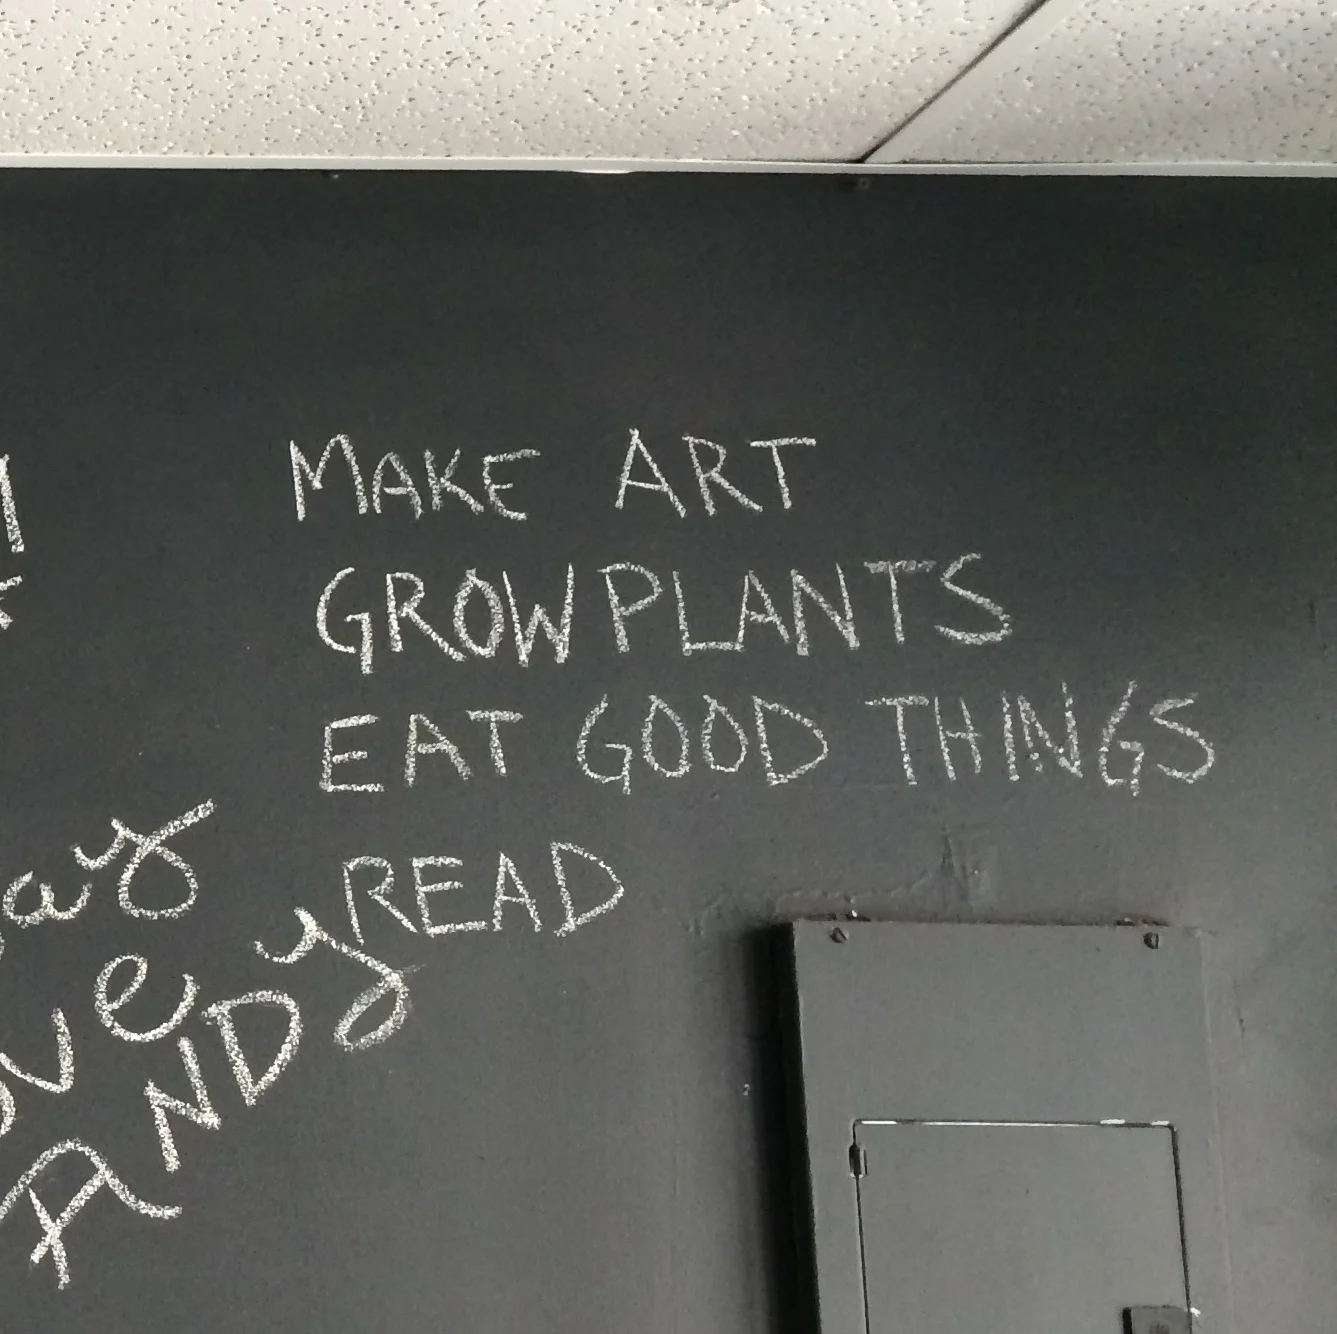 MAKE ART
GROW PLANTS
EAT GOOD THINGS
READ
ANDy